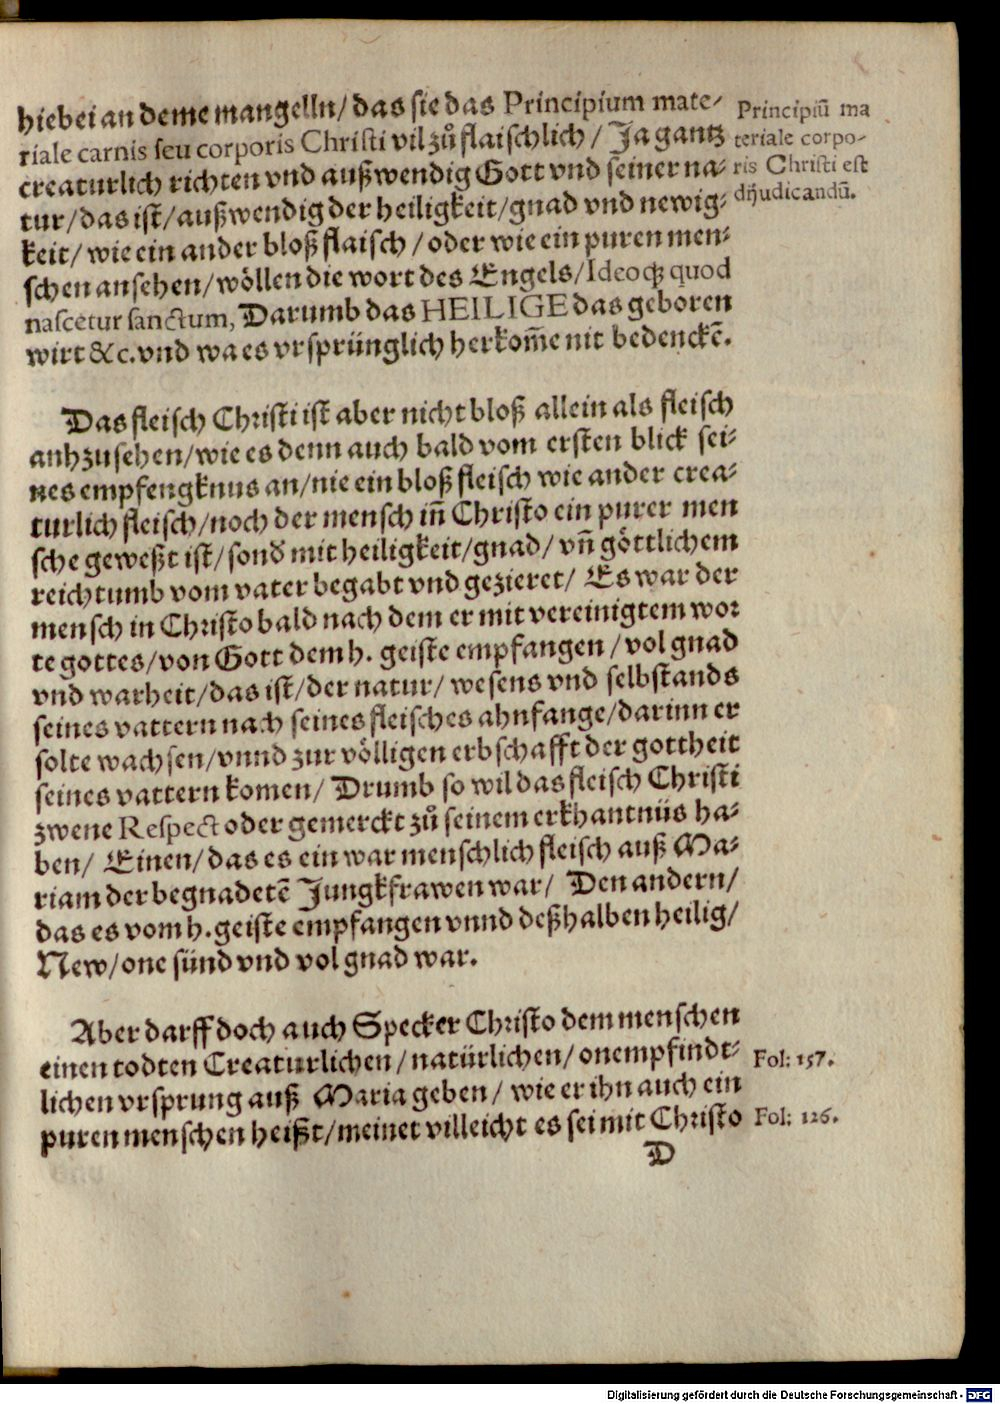 hiebei an deme mangelln/ das sie das Principium mate-
riale carnis seu corporis Christi vil zů flaischlich/ Ja gantz
creaturlich richten vnd außwendig Gott vnd seiner na-
tur/das ist/außwendig der heiligkeit/gnad vnd newig-
keit/ wie ein ander bloß flaisch/oder wie ein puren men-
schen ansehen/wöllen die wort des Engels/Ideoqȝ quod
nascetur sanctum, Darumb das HEILIGE das geboren
wirt &c. vnd wa es vrsprünglich herkom̃e nit bedenckẽ.
Principiũ ma
teriale corpo-
ris Christi est
dijudicandũ.
Das fleisch Christi ist aber nicht bloß allein als fleisch
anhzusehen/wie es denn auch bald vom ersten blick sei-
nes empfengknus an/nie ein bloß fleisch wie ander crea-
turlich fleisch/noch der mensch iñ Christo ein purer men
sche geweßt ist/sonď mit heiligkeit/gnad/ vñ göttlichem
reichtumb vom vater begabt vnd gezieret/ Es war der
mensch in Christo bald nach dem er mit vereinigtem wor
te gottes/von Gott dem h. geiste empfangen/vol gnad
vnd warheit/das ist/der natur/ wesens vnd selbstands
seines vattern nach seines fleisches ahnfange/darinn er
solte wachsen/vnnd zur völligen erbschafft der gottheit
seines vattern komen/ Drumb so wil das fleisch Christi
zwene Respect oder gemerckt zů seinem erkhantnüs ha-
ben/ Einen/das es ein war menschlich fleisch auß Ma-
riam der begnadetẽ Jungkfrawen war/ Den andern/
das es vom h. geiste empfangen vnnd deßhalben heilig/
New/one sünd vnd vol gnad war.
Aber darff doch auch Specker Christo dem menschen
einen todten Creaturlichen/natürlichen/onempfindt-
lichen vrsprung auß Maria geben/ wie er ihn auch ein
puren menschen heißt/meinet villeicht es sei mit Christo
Fol: 157.
Fol: 126.
D
Digitalisierung gefördert durch die Deutsche Forschungsgemeinschaft - DFG